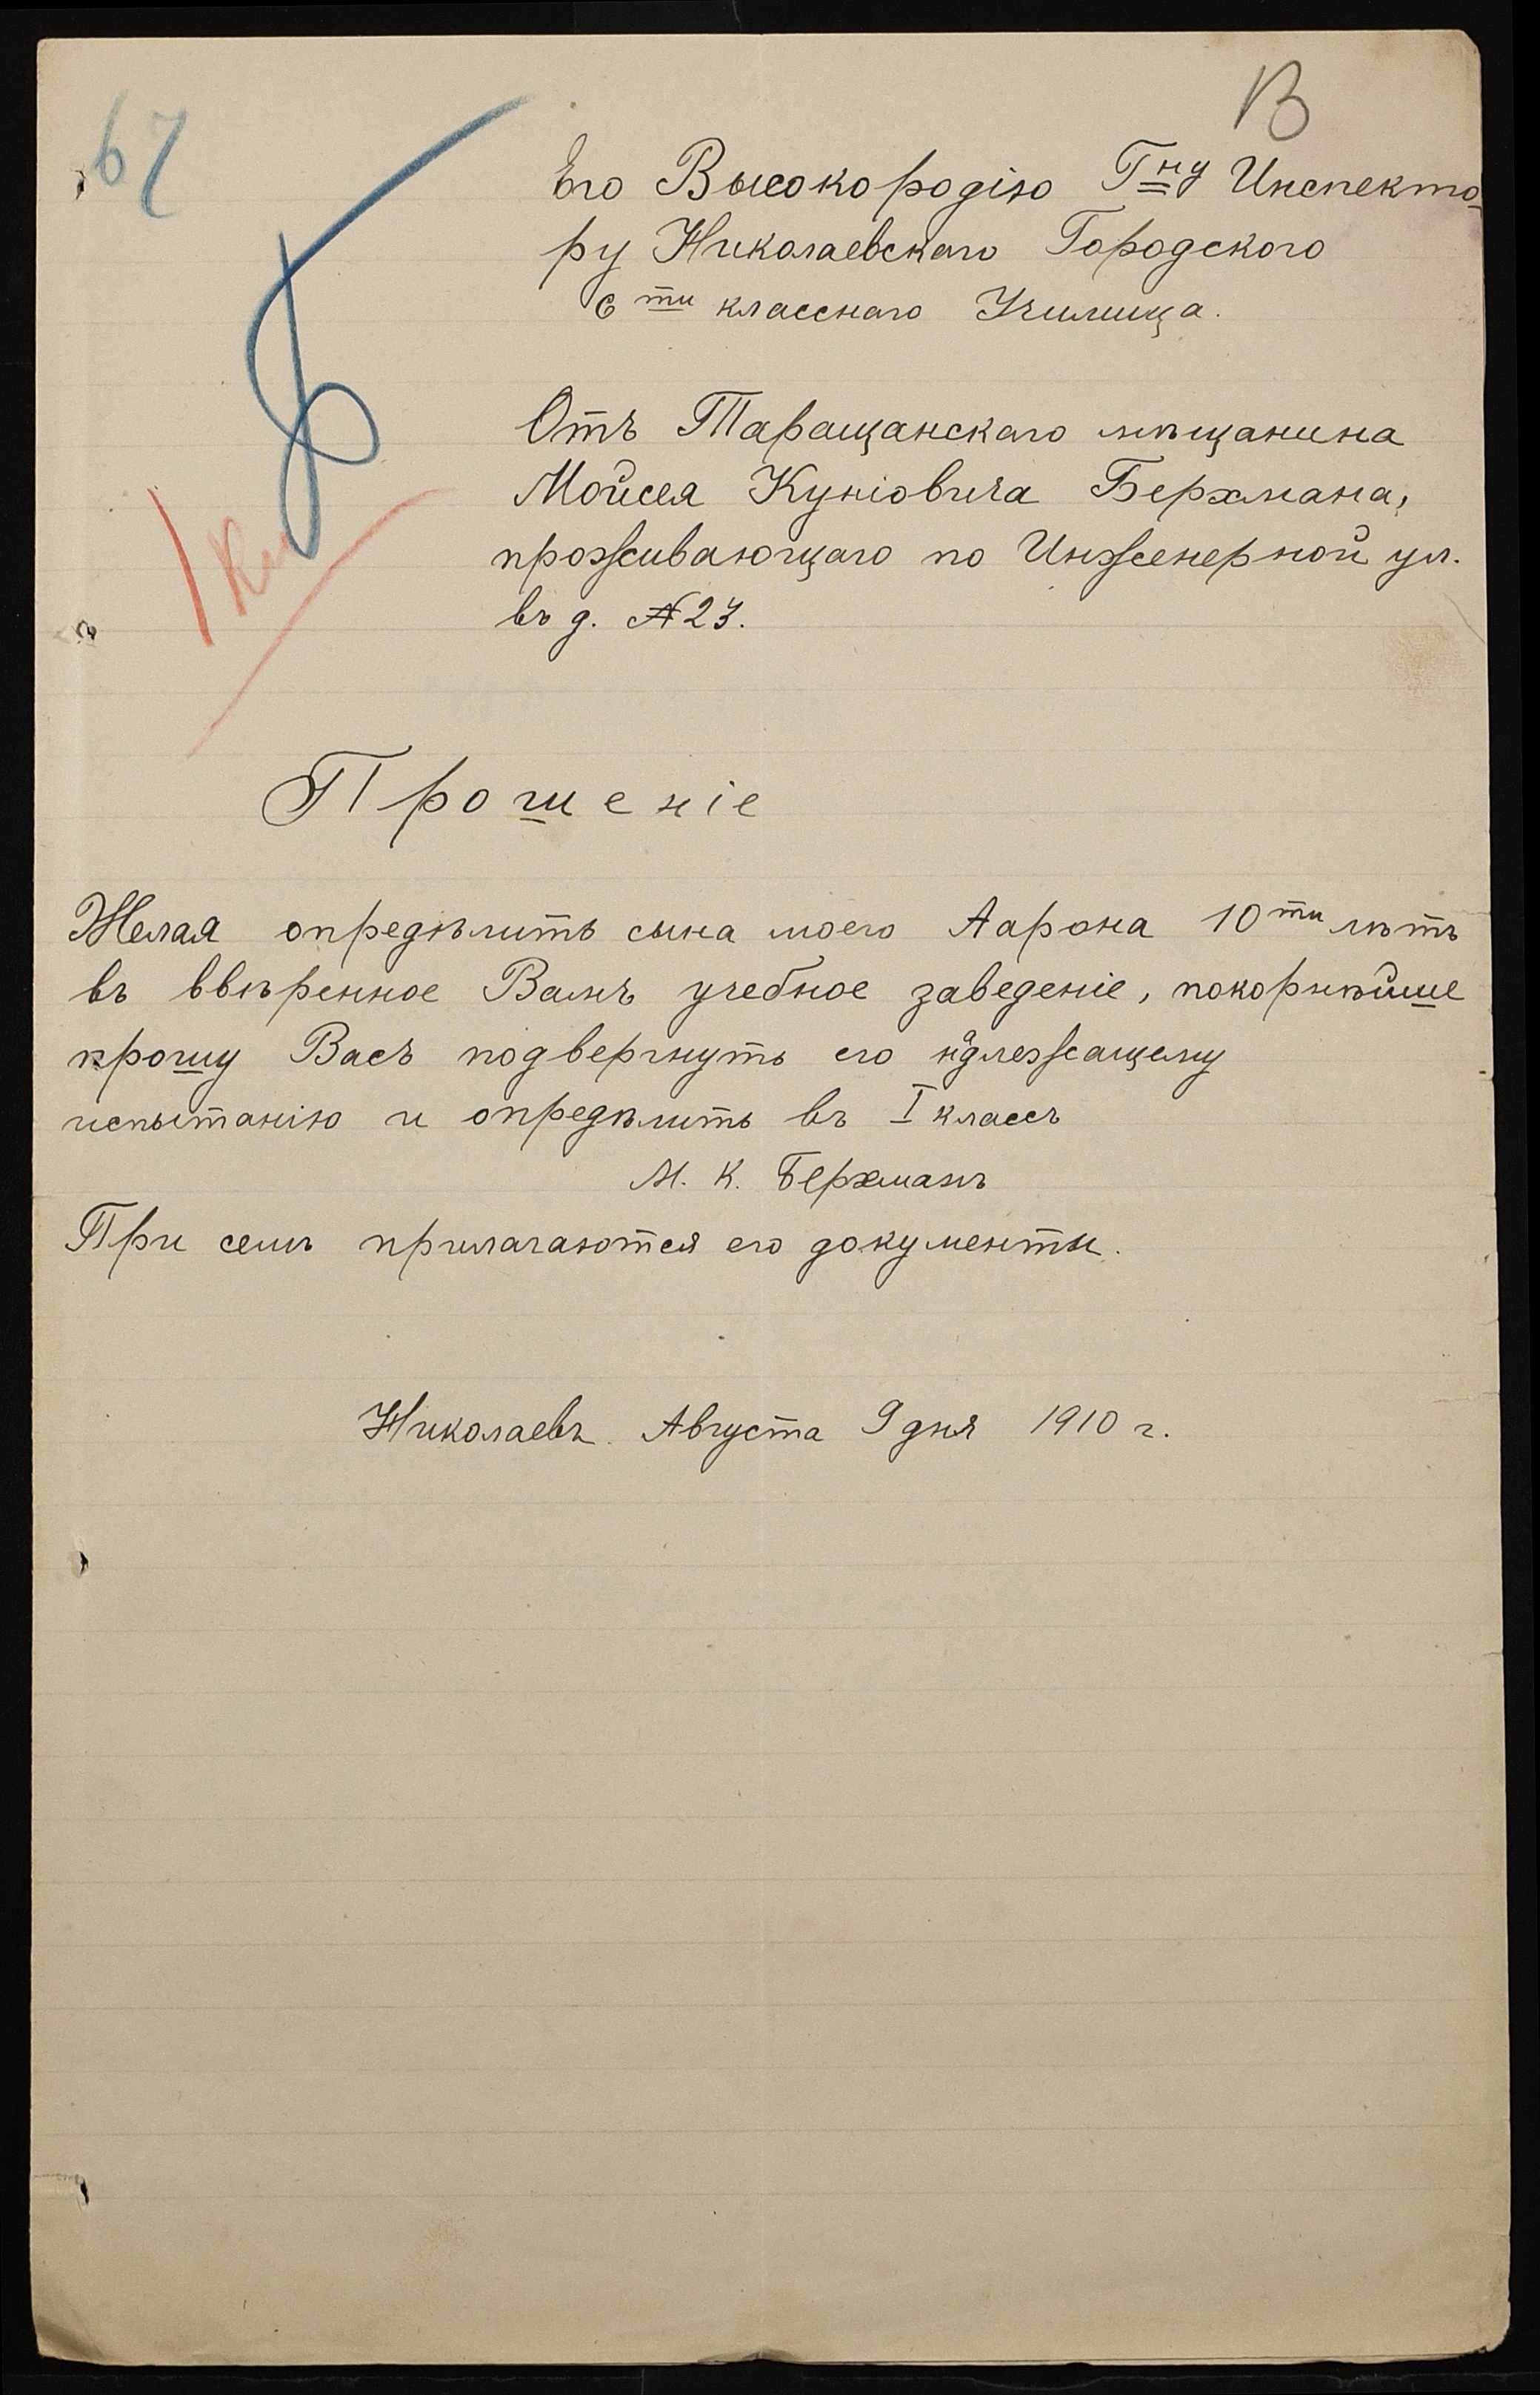 67
В
Его Высокородію Г<sup>ну</sup> Инспекто-
ру Николаевскаго Городского
6<sup>ти</sup> класснаго Училища.
Отъ Таращанскаго мѣщанина
Мойсея Куніовича Берхмана,
проживающаго по Инженерной ул.
въ д. №23.
I Кл
Прошеніе
Желая опредѣлить сына моего Аарона 10<sup>ти</sup> лѣтъ
въ ввѣренное Вамъ учебное заведеніе, покорнѣйше
прошу Васъ подвергнуть его надлежащему
испытанію и опредѣлить въ I классъ
М. К. Берхманъ
При семъ прилагаются его документы.
Николаевъ. Августа 9 дня 1910 г.